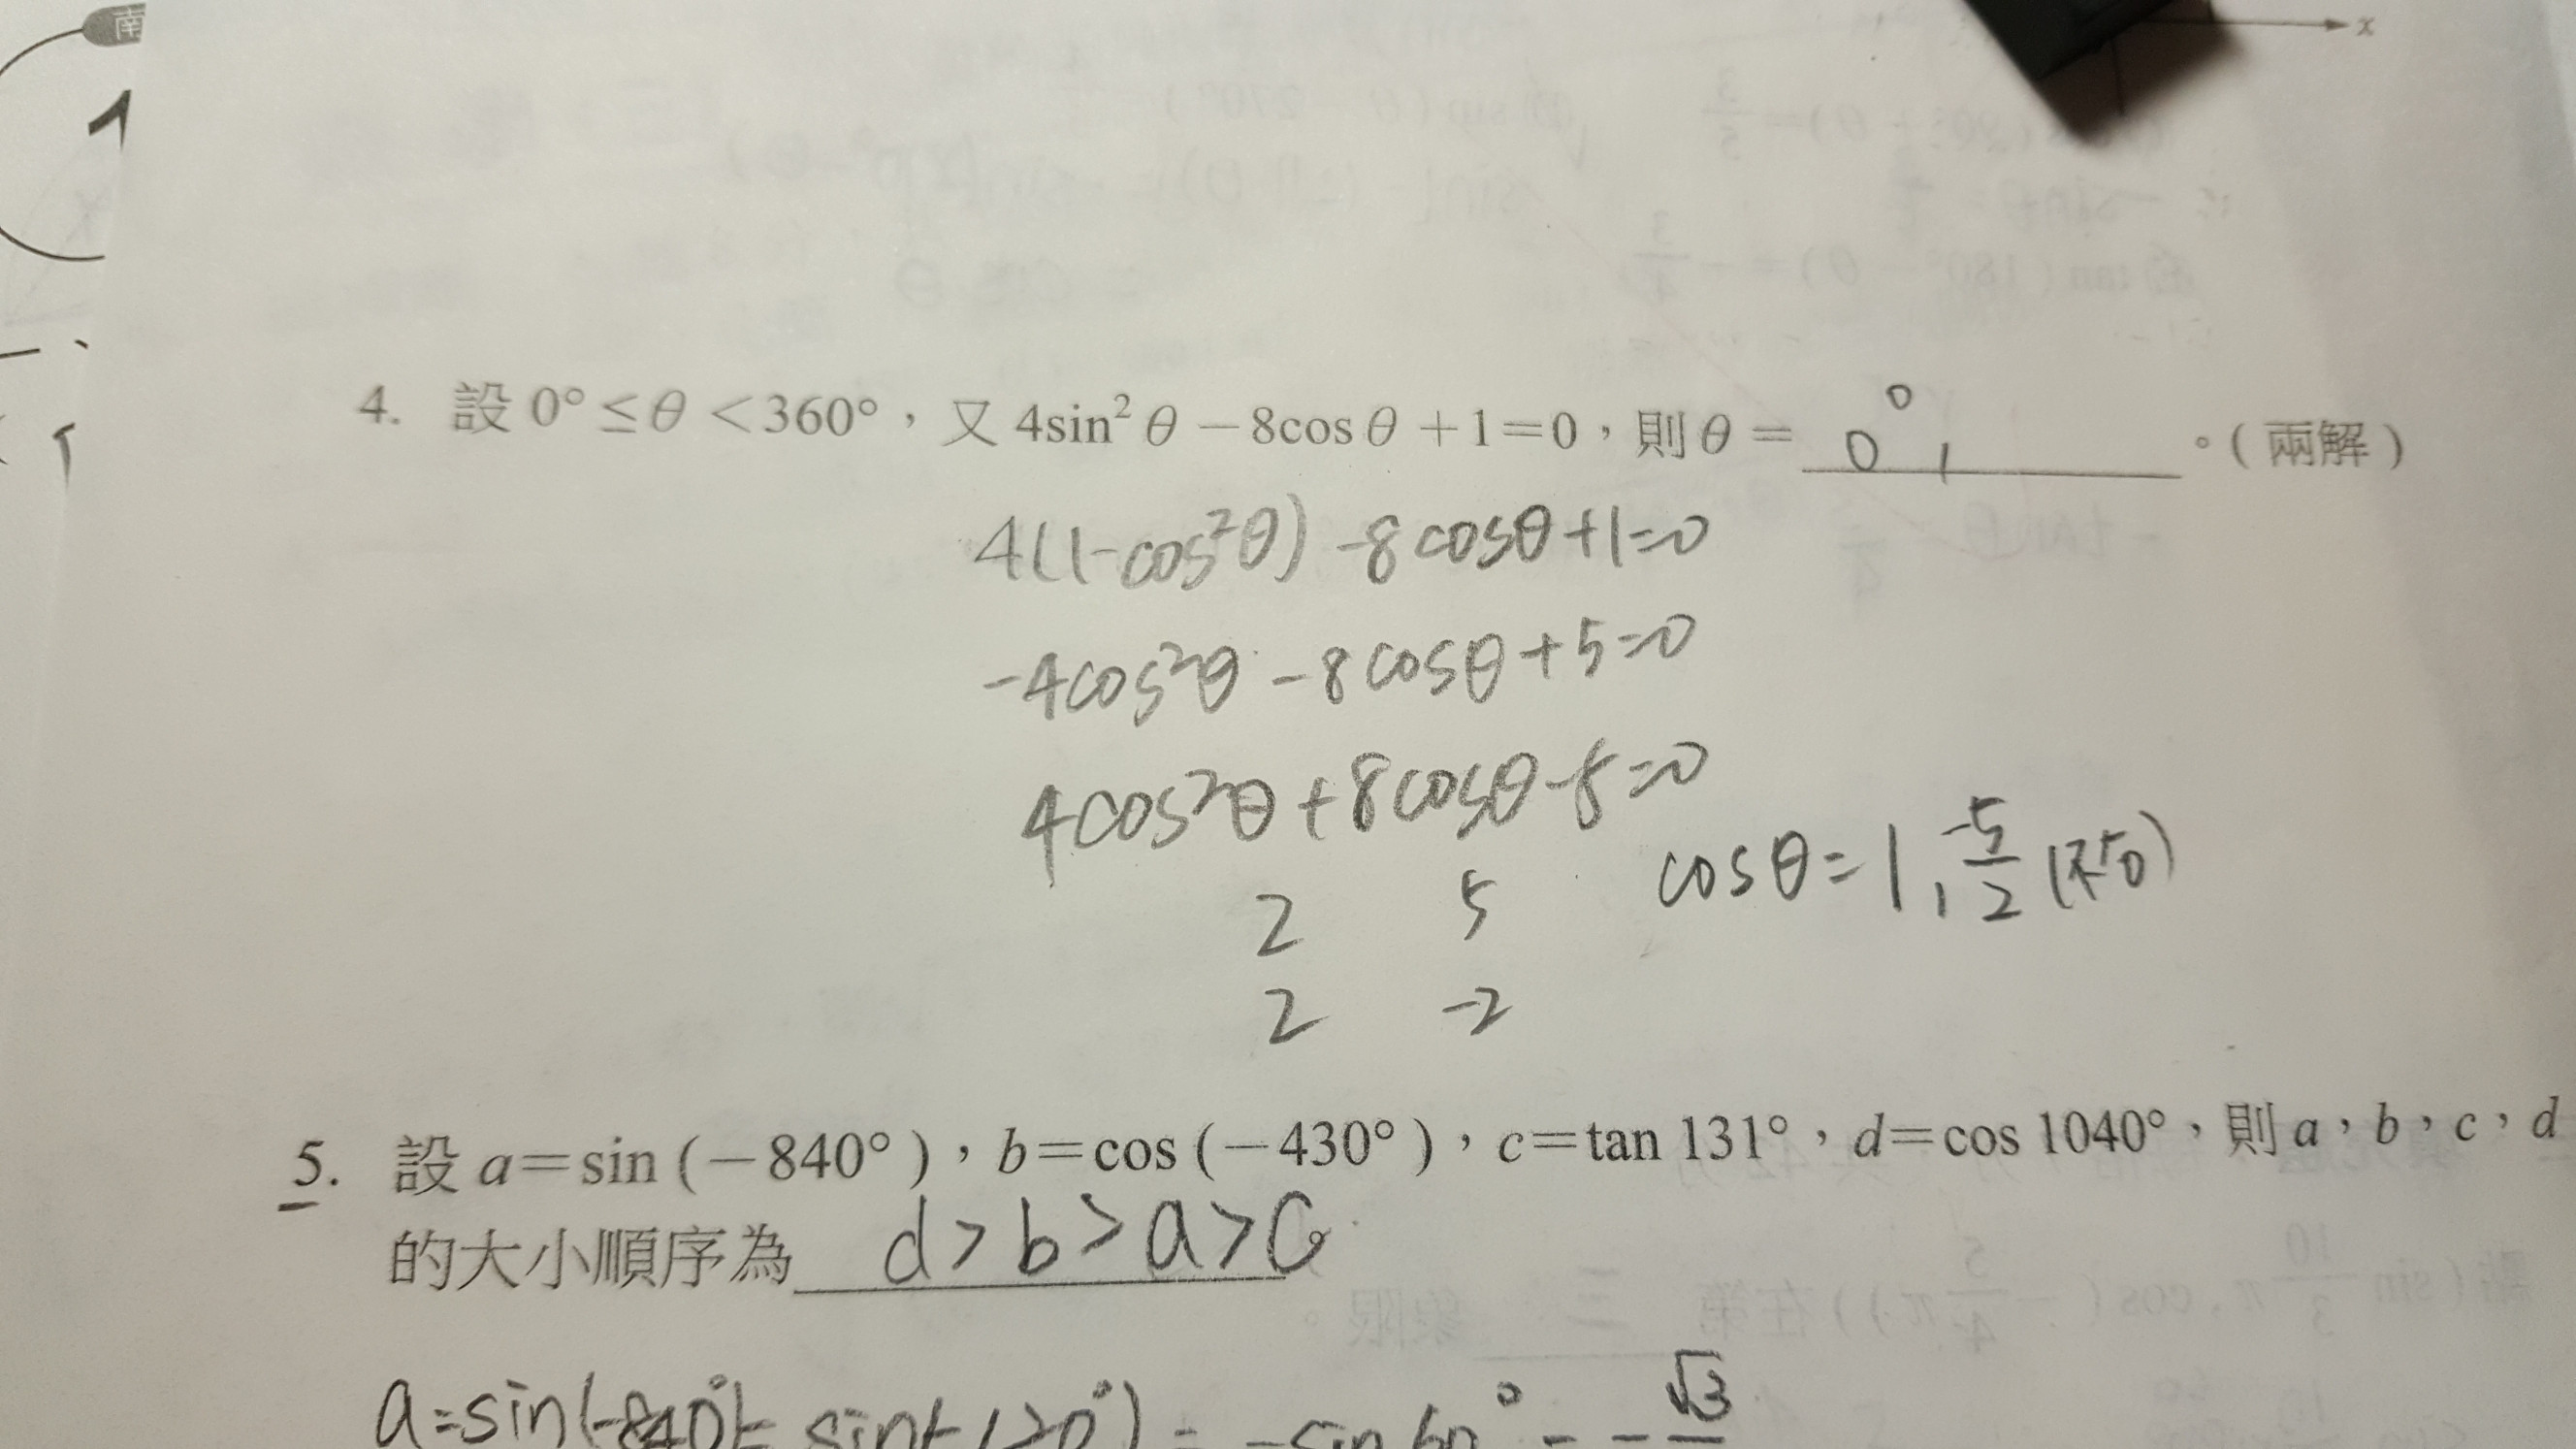 南
x
4. 設 0° ≤ θ < 360°，又 4sin² θ − 8cos θ + 1 = 0，則 θ = 0°, 。(兩解)
4(1-cos²θ) -8cosθ+1=0
-4cos²θ -8cosθ+5=0
4cos²θ+8cosθ-5=0
cosθ=1, -5/2 (不合)
2 5
2 -2
5. 設 a=sin (−840°)，b=cos (−430°)，c=tan 131°，d=cos 1040°，則 a，b，c，d
的大小順序為 d>b>a>c。
a=sin(-840°)= sin(-120°) = -sin60° = -√3